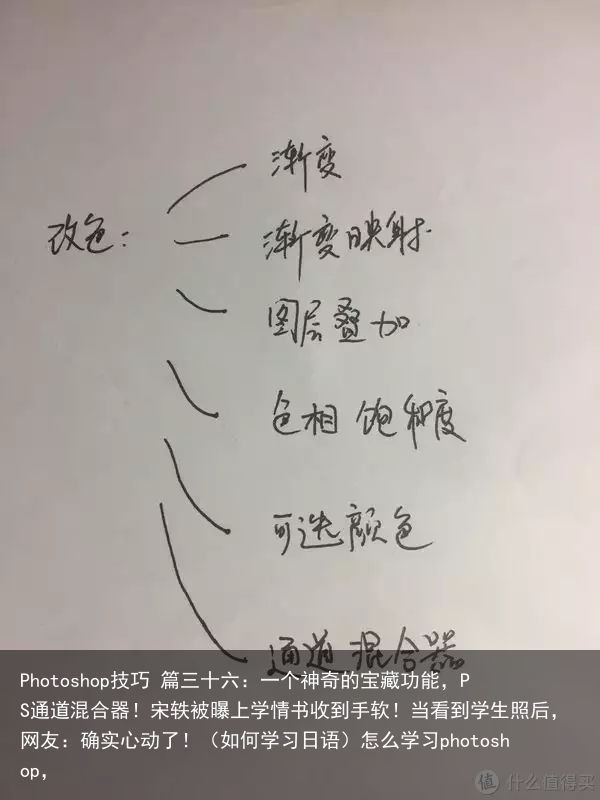 渐变
改色：
渐变映射
图层叠加
色相 饱和度
可选颜色
通道混合器
Photoshop技巧 篇三十六：一个神奇的宝藏功能，P
S通道混合器！宋轶被曝上学情书收到手软！当看到学生照后，
网友：确实心动了！（如何学习日语）怎么学习photosh
op，
值 什么值得买